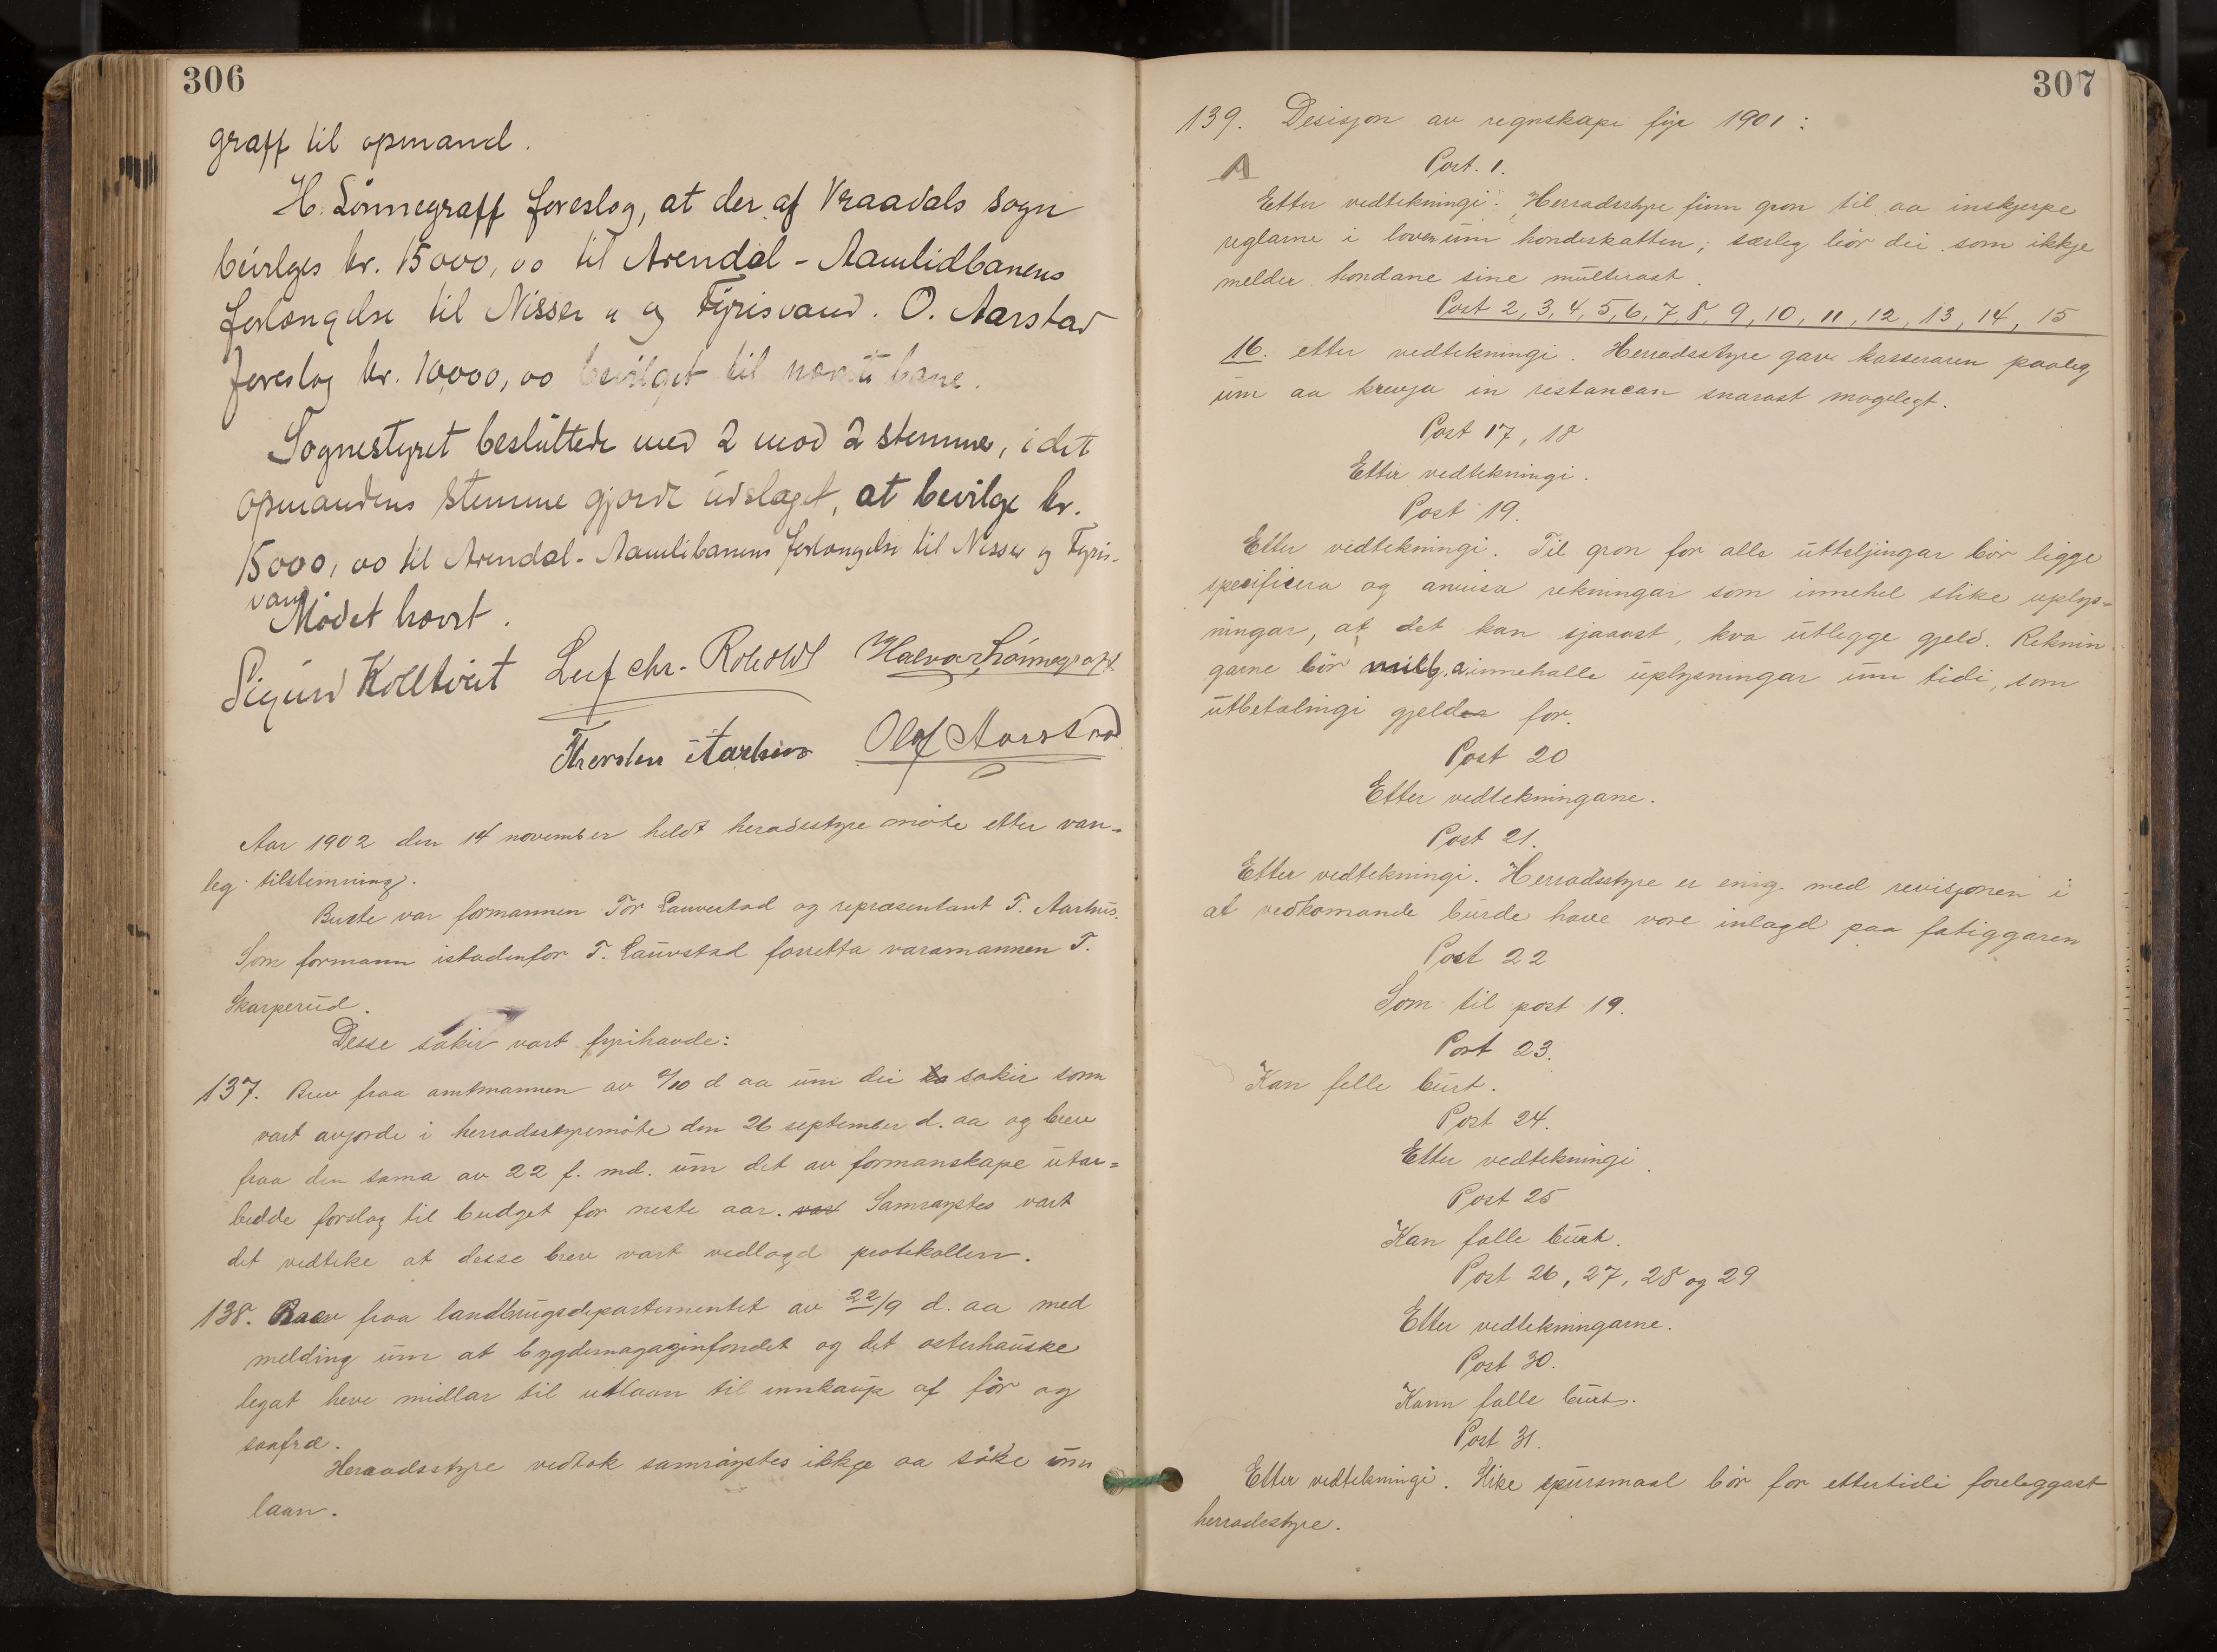 306
graff til opmand.
H. Lønnegraff foreslog, at der af Vraadals sogn
bevilges kr. 15000,00 til Arendal-Aamlidbanens
forlængelse til Nisser " og Fyrisvand. O. Aarstad
foreslog kr. 10,000,00 bevilget til nævnte bane.
Sognestyret besluttede med 2 mod 2 stemmer, idet
opmandens stemme gjorde udslaget, at bevilge kr.
15000,00 til Arendal-Aamlibanens forlængelse til Nisser og Fyris-
vand.
Mødet hævet.
Sigurd Kolltveit Leif Chr. Roholdt Halvor Lønnegraff
Thorsten Aarhus Olaf Aarstad
Aar 1902 den 14 november heldt heradsstyre møte etter van=
leg tilstemning.
Burte var formannen Tor Lauvestad og repræsentant T. Aarhus.
Som formann istadenfor T. Lauvstad forretta varamannen T.
Skarperud.
Desse sakir vart fyrihavde:
137. Brev fraa amtmannen av /10 d aa um dei sakir som
vart avjorde i herradsstyremøte den 26 september d. aa og brev
fraa den sama av 22 f. md. um det av formanskape utar=
bedde forslag til budget for neste aar. Samrøystes vart
det vedteke at desse brev vart vedlagd protokollen.
138. Brev fraa landbrugsdepartementet av 22/9 d. aa med
melding um at bygdemagaginfondet og det osterhauske
legat heve midlar til utlaan til innkaup af fôr og
saafræ.
Heraadsstyre vedtok samrøystes ikkje aa søke um
laan.
307
139. Desisjon av regnskape fyr 1901:
A Post. 1.
Etter vedtekningi. Herradsstyre finn gron til aa inskjerpe
reglarne i loven um hondeskatten; særleg bør dei som ikkje
melder hondane sine multerast.
Post 2, 3, 4, 5, 6, 7, 8, 9, 10, 11, 12, 13, 14, 15
16. etter vedtekningi. Herradsstyre gav kasseraren paaleg
um aa krevja in restancan snarast mogelegt.
Post 17, 18
Etter vedtekningi.
Post 19.
Etter vedtekningi. Til gron for alle utteljingar bør ligge
specificera og anvisa rekningar som innehel slike uplys=
ningar, at det kan sjaaast, kva utlegge gjeld. Reknin-
garne bør innehalle uplysningar um tidi, som
utbetalingi gjelder for.
Post 20
Etter vedtekningane.
Post 21.
Etter vedtekningi. Herradsstyre er enig med revisjonen i
at vedkomande burde have vore inlagd paa fatiggaren
Post 22
Som til post 19.
Post 23.
Kan felle burt.
Post 24.
Etter vedtekningi.
Post 25
Kan falle burt.
Post 26, 27, 28 og 29
Etter vedtekningarne.
Post 30.
Kann falle burt.
Post 31.
Etter vedtekningi. Slike spursmaal bør for ettertidi foreleggast
herradsstyre.